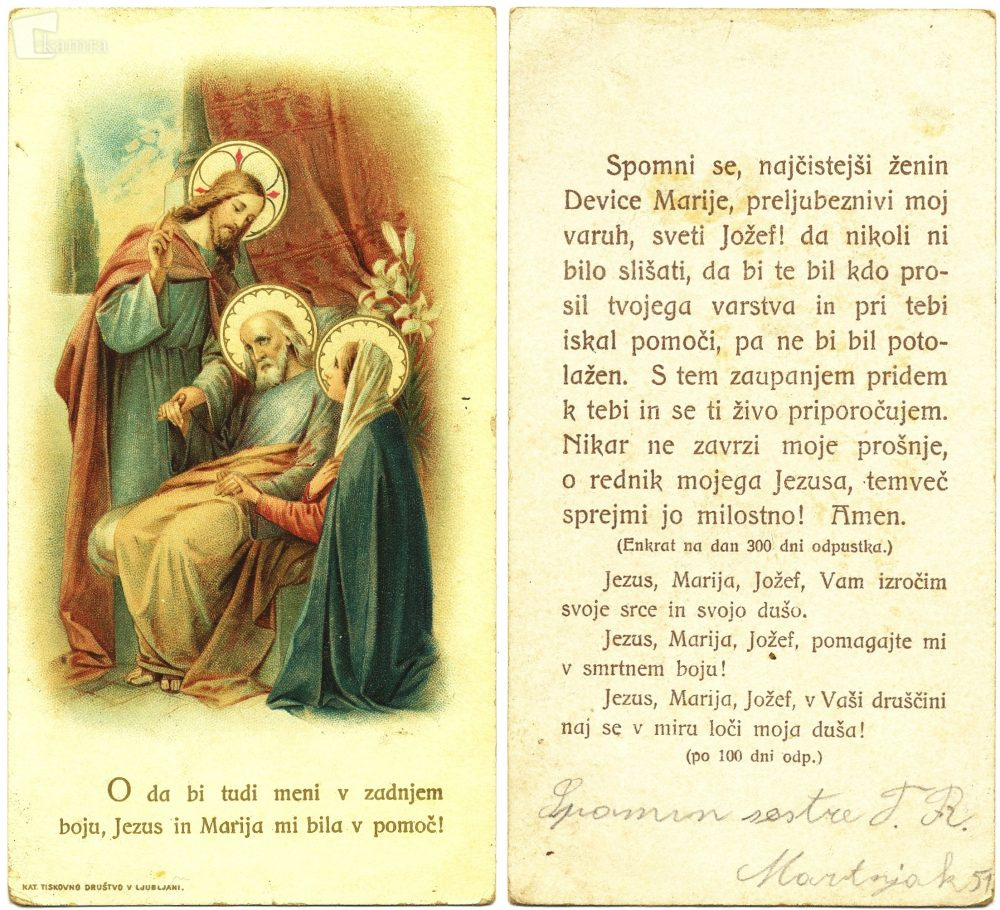 kamra
O da bi tudi meni v zadnjem
boju, Jezus in Marija mi bila v pomoč!
KAT. TISKOVNO DRUŠTVO V LJUBLJANI.
Spomni se, najčistejši ženin
Device Marije, preljubeznivi moj
varuh, sveti Jožef! da nikoli ni
bilo slišati, da bi te bil kdo pro-
sil tvojega varstva in pri tebi
iskal pomoči, pa ne bi bil poto-
lažen. S tem zaupanjem pridem
k tebi in se ti živo priporočujem.
Nikar ne zavrzi moje prošnje,
o rednik mojega Jezusa, temveč
sprejmi jo milostno! Amen.
(Enkrat na dan 300 dni odpustka.)
Jezus, Marija, Jožef, Vam izročim
svoje srce in svojo dušo.
Jezus, Marija, Jožef, pomagajte mi
v smrtnem boju!
Jezus, Marija, Jožef, v Vaši druščini
naj se v miru loči moja duša!
(po 100 dni odp.)
Spomin sestre T. R.
Martnjak 51